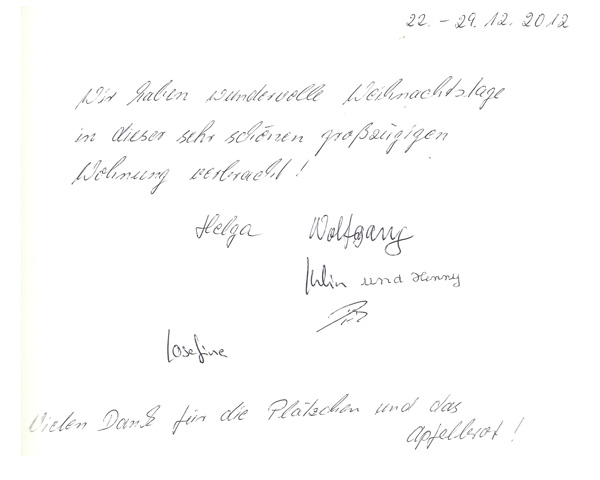 22. - 29. 12. 2012
Wir haben wundervolle Weihnachtstage
in dieser sehr schönen großzügigen
Wohnung verbracht!
Helga Wolfgang
und Henny
Josefine
Vielen Dank für die Plätzchen und das
Apfelbrot!